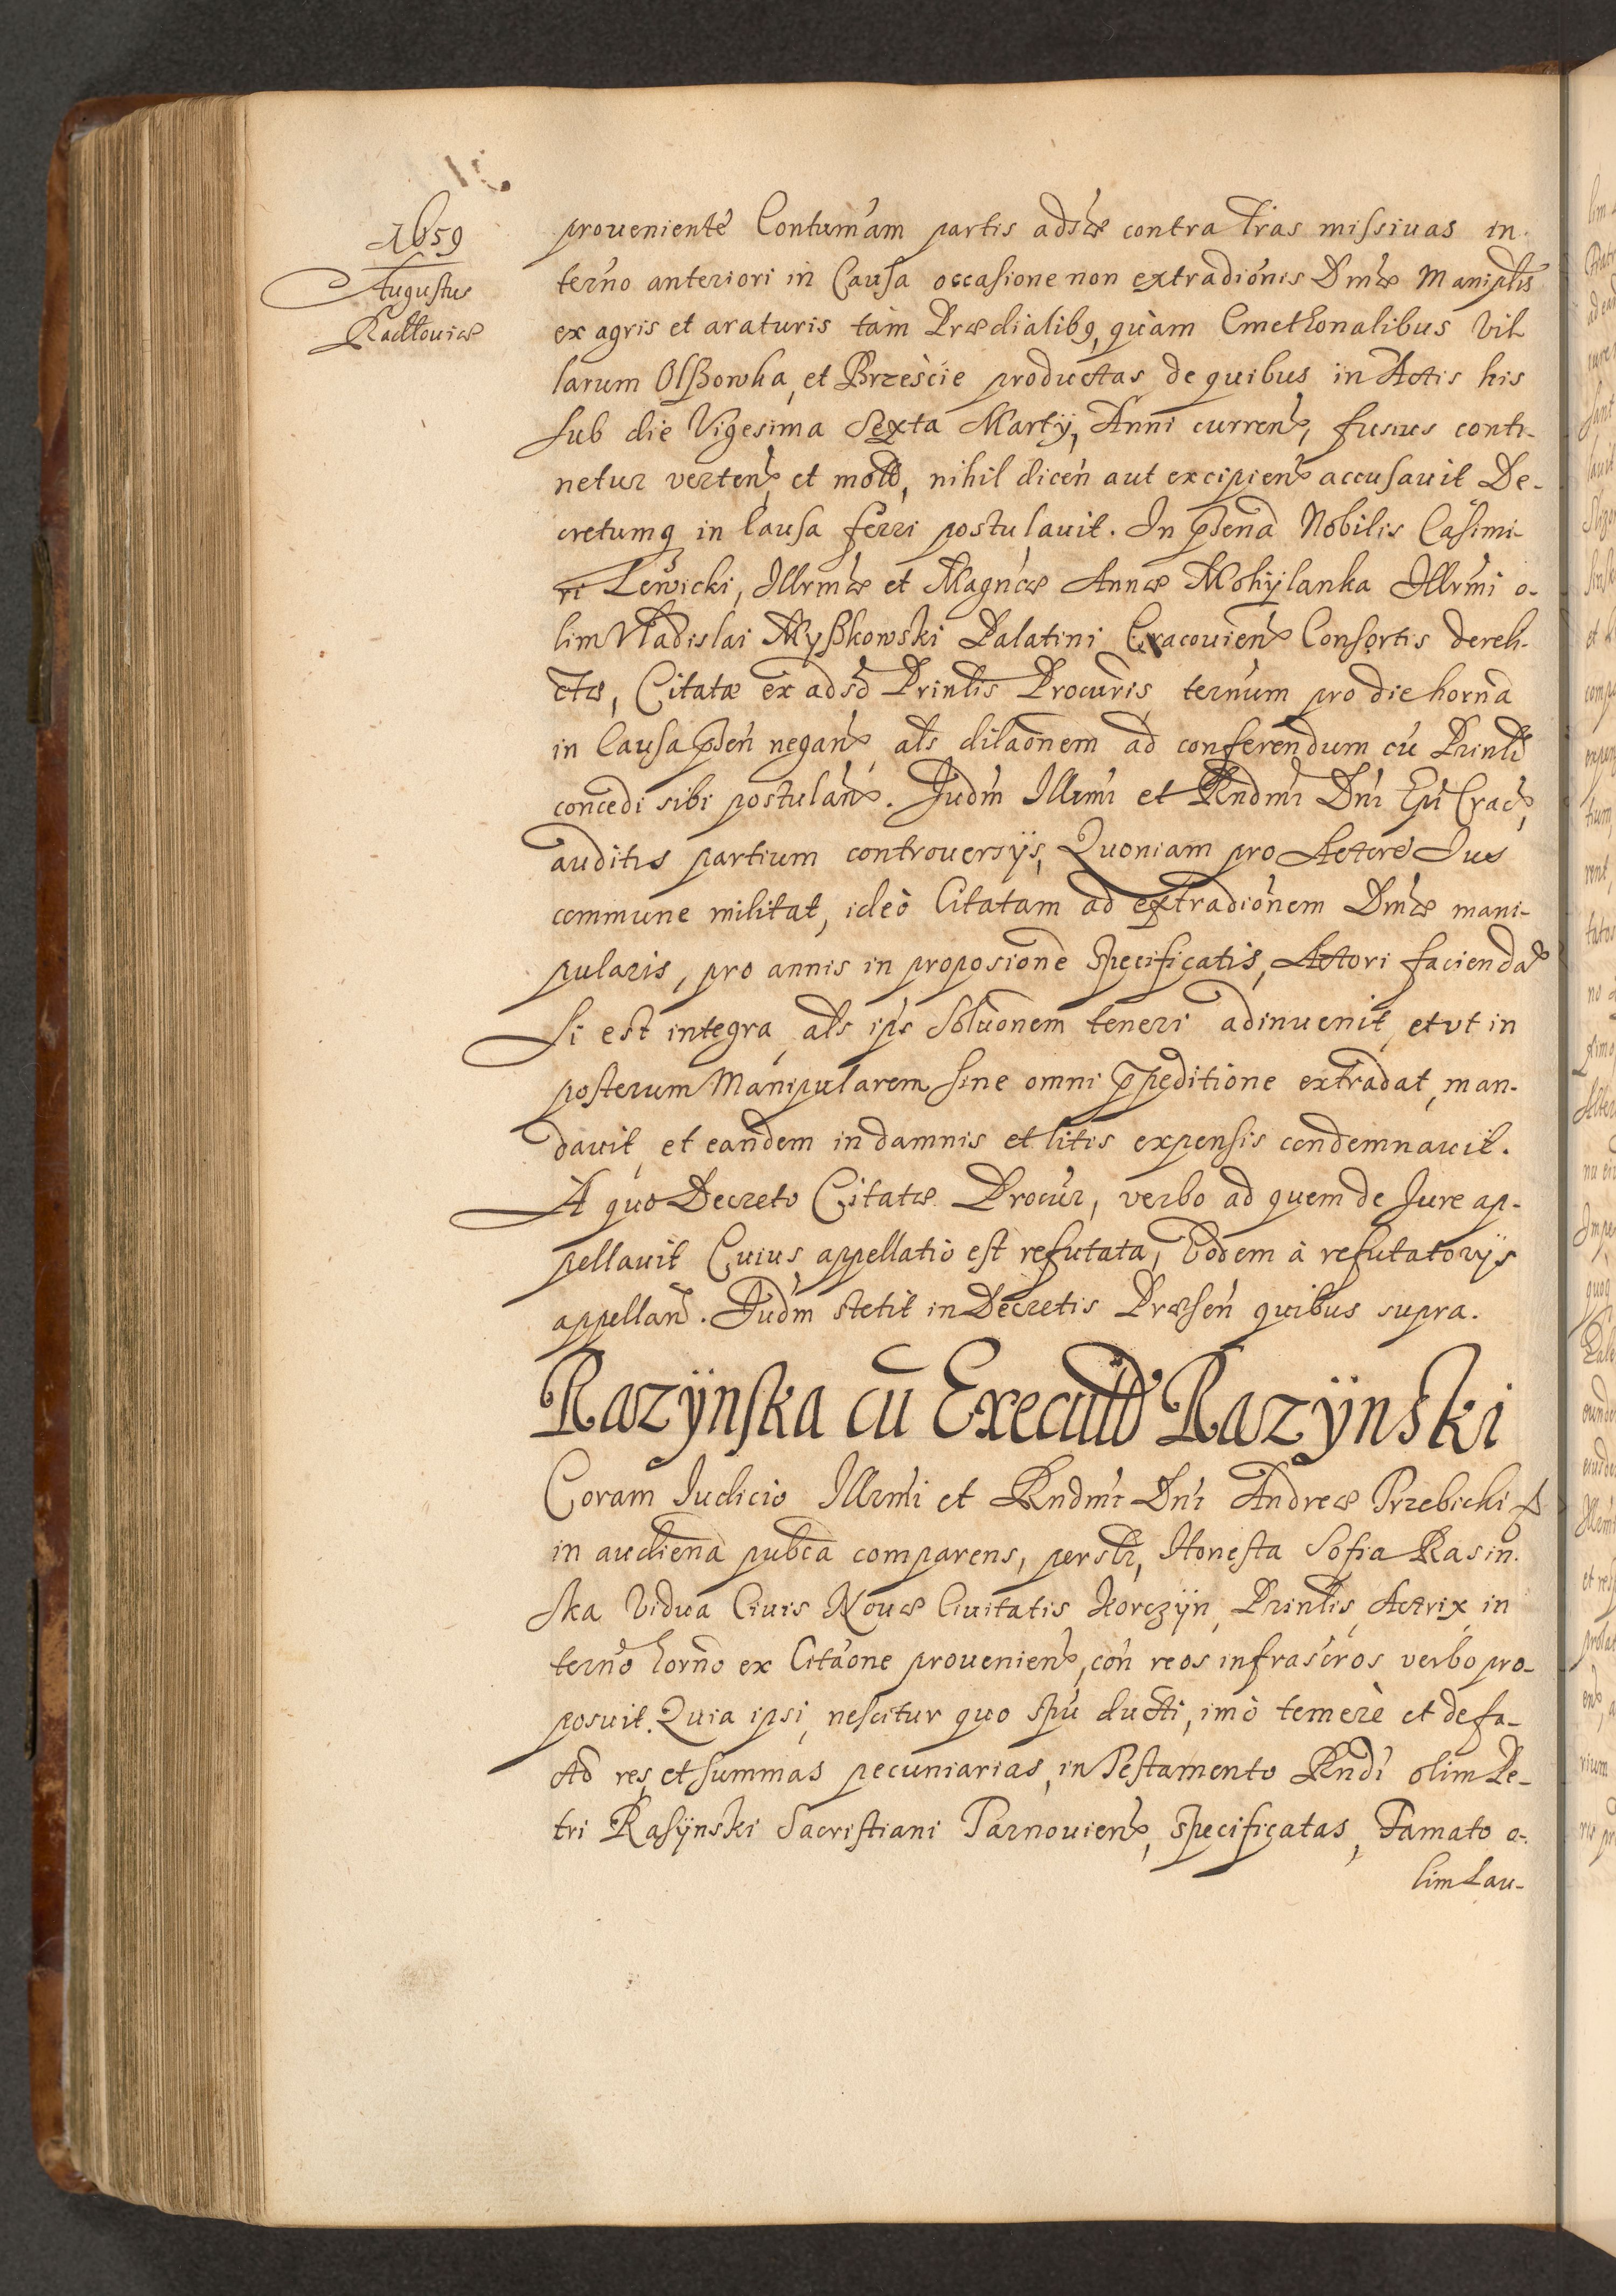 1659
Augustus
Radłouiæ
prouenienté Contum̃am partis adsæ contra Lr̃as missiuas in
ter̃no anteriori in Causa occasione non extradiónis Dmæ Maniplis
ex agris et araturis tàm Prædialibꝫ, quàm Cmethonalibus Vil
larum Olßowka, et Brzeście productas de quibus in Actis his
sub die Vigesima Sexta Martÿ, Anni curren, fusius conti-
netur verten, et mõtt, nihil diceń aut excipien accusauit De-
cretumq in Causa ferri postulauit. In p̃sena Nobilis Casimi-
ri Lewicki, Illrmæ et Magńcæ Annæ Mohÿlanka Illrm̃i o-
lim Vladislai Myßkowski Palatini Cracouien Consortis dereli-
ctæ, Citatæ ex adsõ Prinlis Procuris ternum pro die horna
in Causa p̃sen negan, als dilaõnem ad conferendum cũ Prinli
concedi sibi postulan. Judm̃ Illrmi et Rndmi Dñi Epĩ Crac,
auditis partium controuersÿs, Quoniam pro Actore Ius
commune militat, ideò Citatam ad extradiónem Dmæ mani-
pularis, pro annis in proposione specificatis, Actori facienda
si est integra, als ips soluõnem teneri adinuenit, et vt in
posterum Manipularem sine omni p̃peditione extradat, man-
dauit, et eandem in damnis et litis expensis condemnauit.
A quo Decreto Citatæ Procur̃, verbo ad quem de Jure ap-
pellauit Cuius appellatio est refutata, Eodem à refutatorÿs
appellan̄. Judm̃ stetit in Decretis Præsen̄ quibus supra.
Razÿnska cũ Executt Razÿnski
Coram Iudicio Illrmi et Rndmi Dñi Andreæ Trzebicki
in audiena pubca comparens, persli, Honesta Sofia Rasin
ska Vidua Ciuis Nouæ Ciuitatis Korczÿn, Prinlis Actrix in
ter̃no hor̃no ex Citaõne prouenien, con̄ reos infrascr̃os verbo pro-
posuit. Quia ipsi, nescitur quo spũ ducti, imò temerè et defa-
Ad res et summas pecuniarias, in Testamento Rndi olim Pe-
tri Rasÿnski Sacristiani Tarnouien, specificatas, Famato o-
lim Lau-